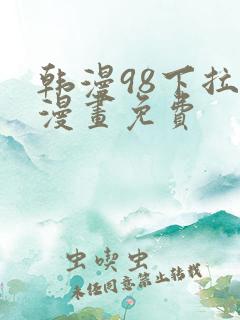 韩漫98下拉
漫畫免費
虫喫虫
未任同意禁止转载